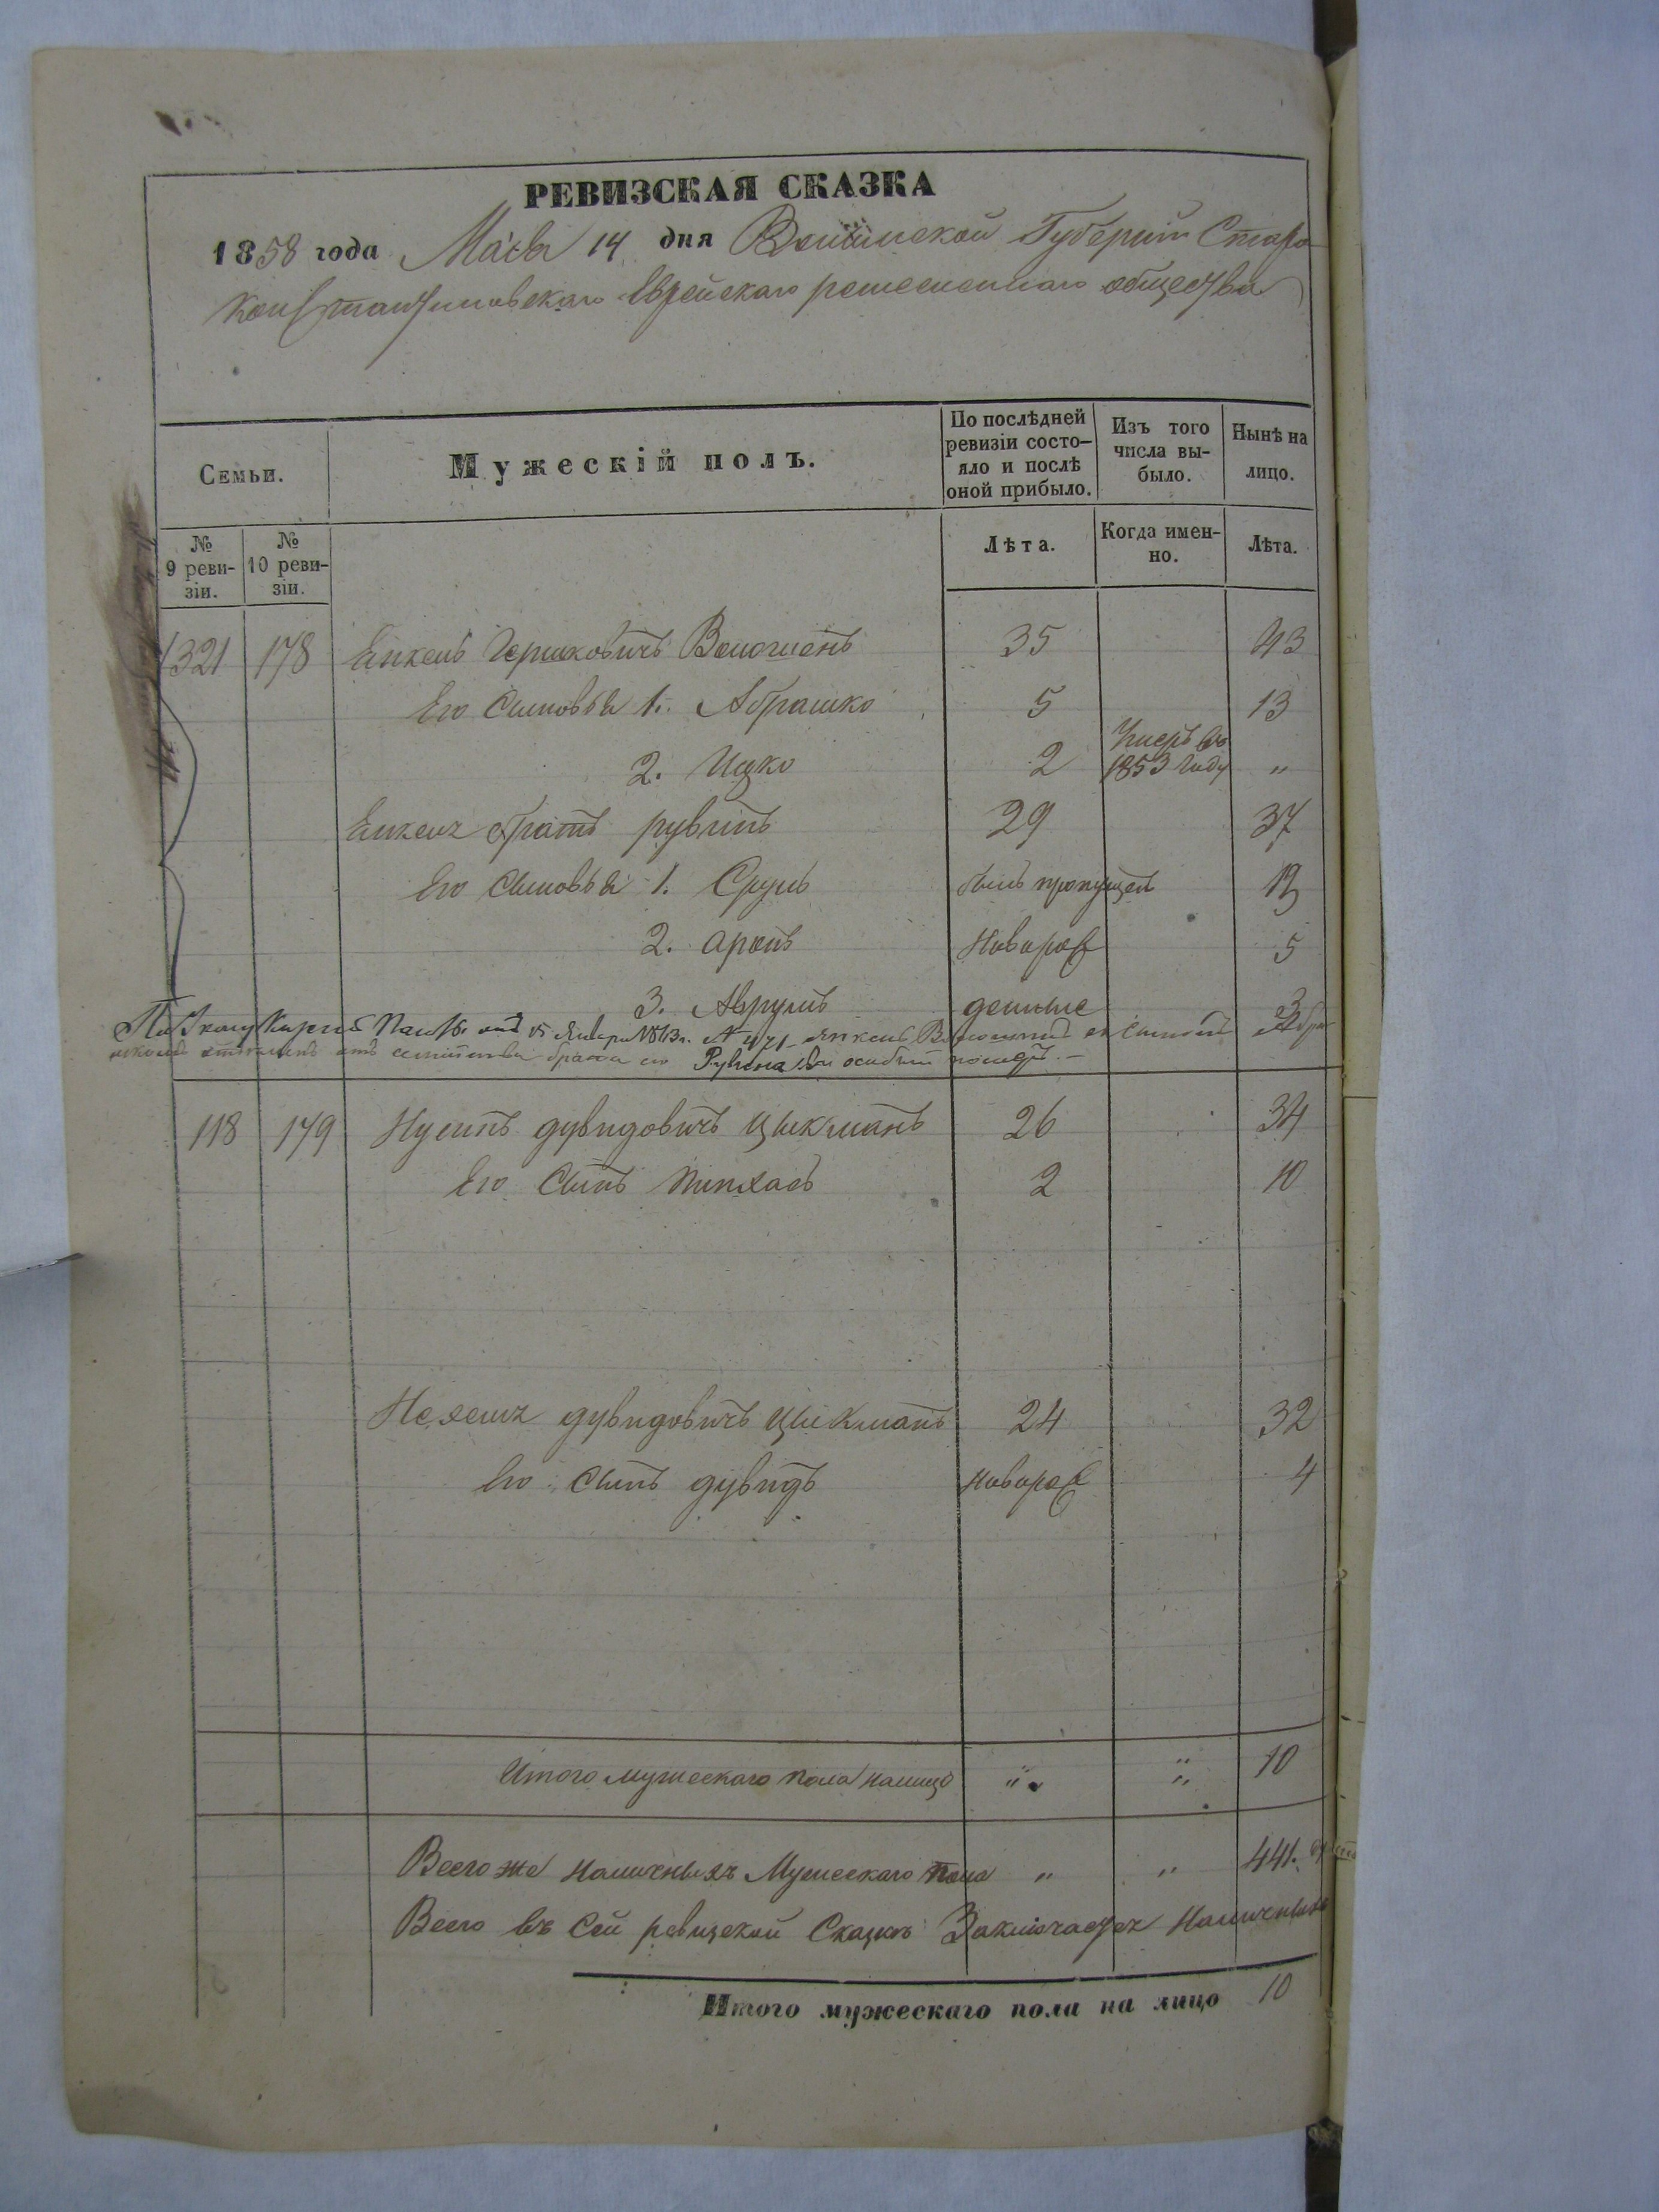 РЕВИЗСКАЯ СКАЗКА
1858 года Маія 14 дня Волынской Губерніи Старо
константиновскаго Еврейскаго ремесленнаго общества
Семьи.
Мужескій полъ.
По послѣдней ревизіи состо-
яло и послѣ
оной прибыло.
Изъ того
числа вы-
было.
Нынѣ на
лицо.
№
9 реви-
зіи.
№
10 реви-
зіи.
Лѣта.
Когда имен-
но.
Лѣта.
1321 178 Янкель Гершковичъ Волошенъ 35 43
Его Сыновья 1. Абрашко 5 13
2. Ицко 2 Умеръ въ 1853 году "
Янкеля братъ рувинъ 29 37
Его Сыновья 1. Сруль былъ пропущенъ 13
2. аронъ Новорож 5
3. Аврумъ денные 3
По Указу Казенной Палаты отъ 15 Января 1873 г. № 471 Янкель Волошинъ съ сыномъ Абра
отъ семейства брата его Рувина въ особый номеръ.—
118 179 Нусинъ дувидовичъ Цыкманъ 26 34
Его Сынъ Пинхасъ 2 10
Нехемя дувидовичъ Цыкманъ 24 32
Его Сынъ дувидъ Новорож 4
Итого мужескаго пола налицо " " 10
Всего же наличныхъ Мужескаго пола " " 441.
Всего въ Сей ревизской Сказкѣ Заключается Наличныхъ
Итого мужескаго пола на лицо 10